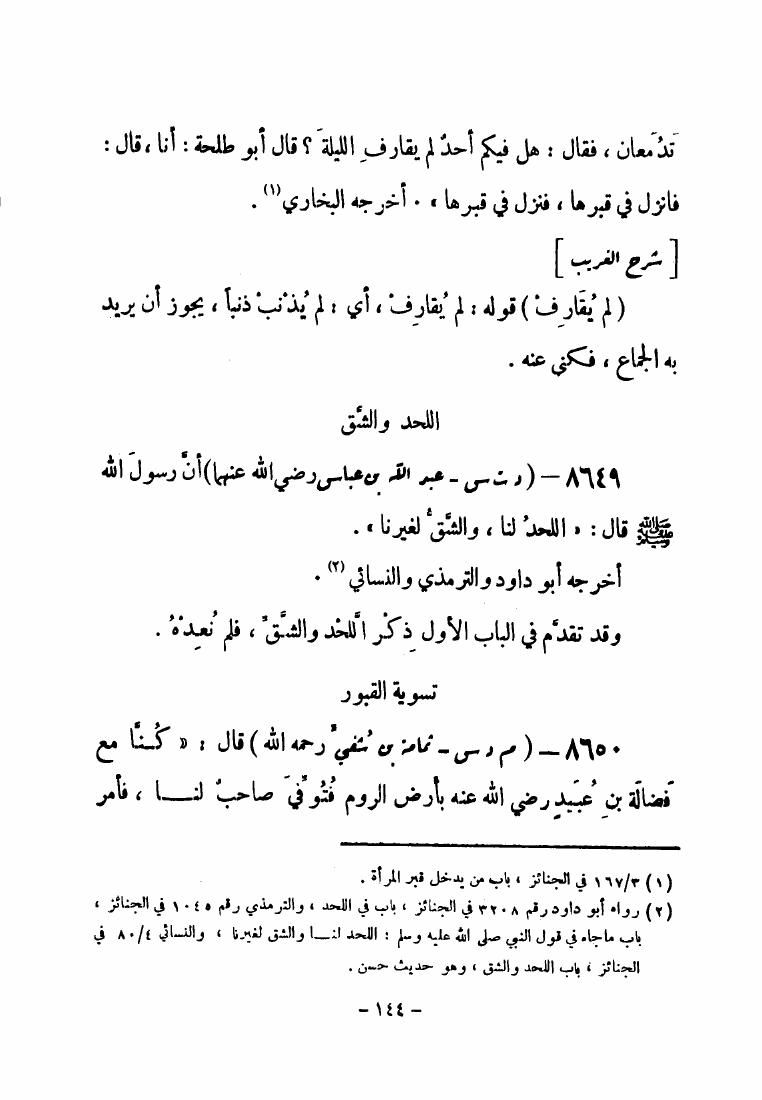 تَدْمَعان ، فقال : هل فيكم أحدٌ لم يقارفِ الليلةَ ؟ قال أبو طلحة : أنا ، قال :
فانزل في قبرها ، فنزل في قبرها » . أخرجه البخاري (١) .
[ شرح الغريب ]
( لم يُقَارِفْ ) قوله : لم يُقارِفْ ، أي : لم يُذْنِبْ ذنباً ، يجوز أن يريد
به الجماع ، فكنى عنه .
اللحد والشَّق
٨٦٤٩ – ( د ت س - عبد الله بن عباس رضي الله عنهما ) أنَّ رسولَ الله
ﷺ قال : « اللحدُ لنا ، والشَّقُّ لغيرنا » .
أخرجه أبو داود والترمذي والنسائي (٢) .
وقد تقدَّم في الباب الأول ذِكْر اللَّحْد والشَّقِّ ، فلم نُعِدْهُ .
تسوية القبور
٨٦٥٠ – ( م د س - ثمامة بن شُفيّ رحمه الله ) قال : « كُنَّا مع
فَضالَة بنِ عُبَيدٍ رضي الله عنه بأرض الروم فَتُوُفِّيَ صاحبٌ لنا ، فأمر
(١) ١٦٧/٣ في الجنائز ، باب من يدخل قبر المرأة .
(٢) رواه أبو داود رقم ٣٢٠٨ في الجنائز ، باب في اللحد ، والترمذي رقم ١٠٤٥ في الجنائز ،
باب ماجاء في قول النبي صلى الله عليه وسلم : اللحد لنا والشق لغيرنا ، والنسائي ٨٠/٤ في
الجنائز ، باب اللحد والشق ، وهو حديث حسن .
- ١٤٤ -